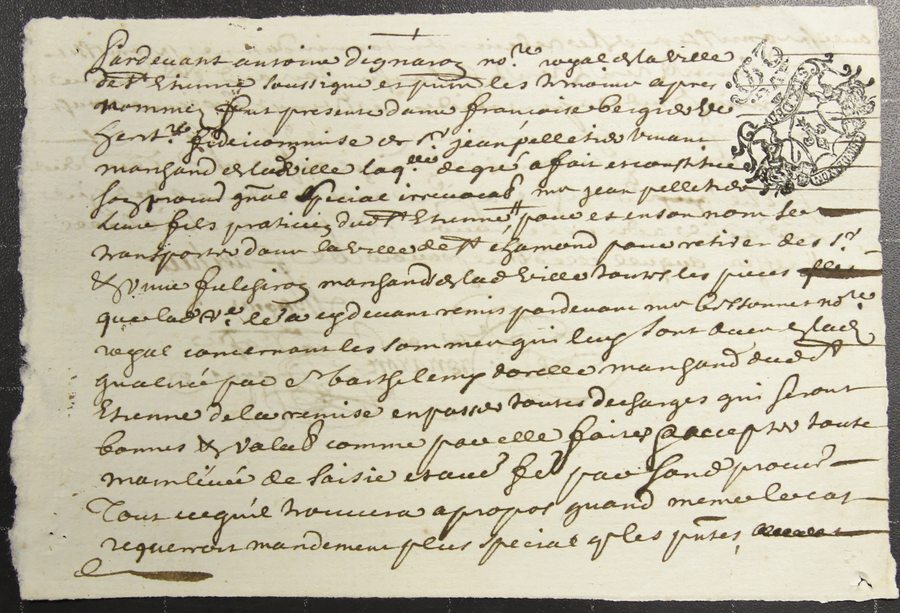 Pardevant antoine dignaron no.re royal de la ville
de St Etienne soussigné et pnts les tesmoins apres
nommé, fut presente dame françoise bergier ve
herit.re fideicommise de Sr jean pelletier vivant
marchand de lad ville laq.lle de gré a fait et constitué
son procur gnãl & special irrevocab me jean pelletier
leur fils praticien dud St Etienne pour et en son nom se
transporter dans la ville de St chamond pour retirer des Srs
& marchand de lad ville toutes les pieces
que lad Ve. leur a cy devant remis pardevant me bessonnet no.re
royal concernant les sommes qui luy sont deues en lad
qualité par Sr barthelemy marchand dud St
Etienne de la remise en passer toutes descharges qui seront
bonnes & valab comme par elle faites & accepter toute
mainlevée de saisie et par sond procur
Tout ce qu'il trouvera a propos quand meme le cas
requerroit mandement plus special q les pntes